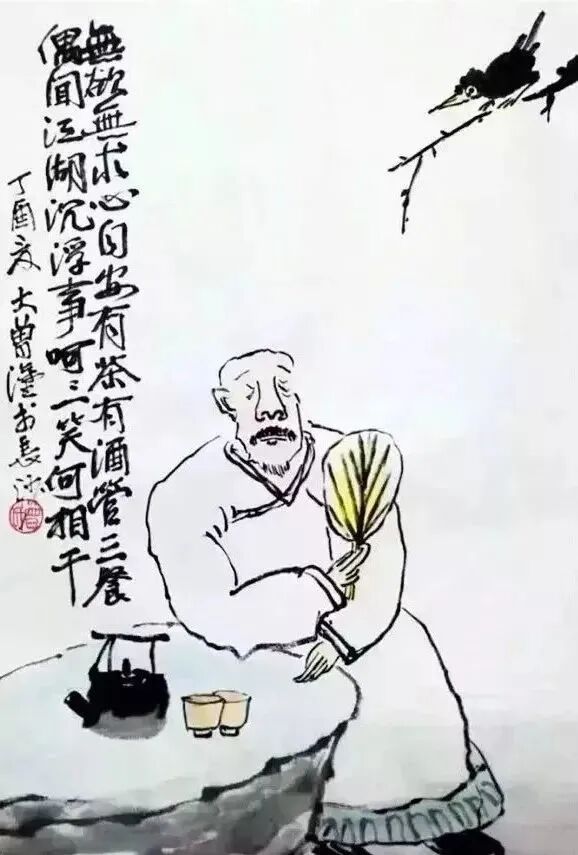 無欲無求心自安有茶有酒管三餐
偶聞江湖沉浮事呵三笑何相干
丁酉夏大曾漢於長沙